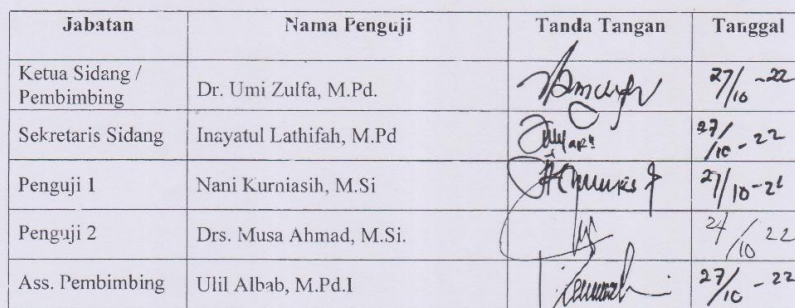 Jabatan Nama Penguji Tanda Tangan Tanggal
Ketua Sidang /
Pembimbing Dr. Umi Zulfa, M.Pd. 27/10-22
Sekretaris Sidang Inayatul Lathifah, M.Pd 27/10-22
Penguji 1 Nani Kurniasih, M.Si 27/10-2
Penguji 2 Drs. Musa Ahmad, M.Si. /10 22
Ass. Pembimbing Ulil Albab, M.Pd.I 27/10-22